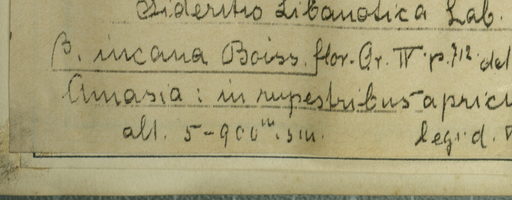 Sideritis Libanotica Lab.
β. incana Boiss. flor. Or. IV p. 712 del
Amasia: in rupestribus apric
alt. 5-900 m. s.m. leg. d.